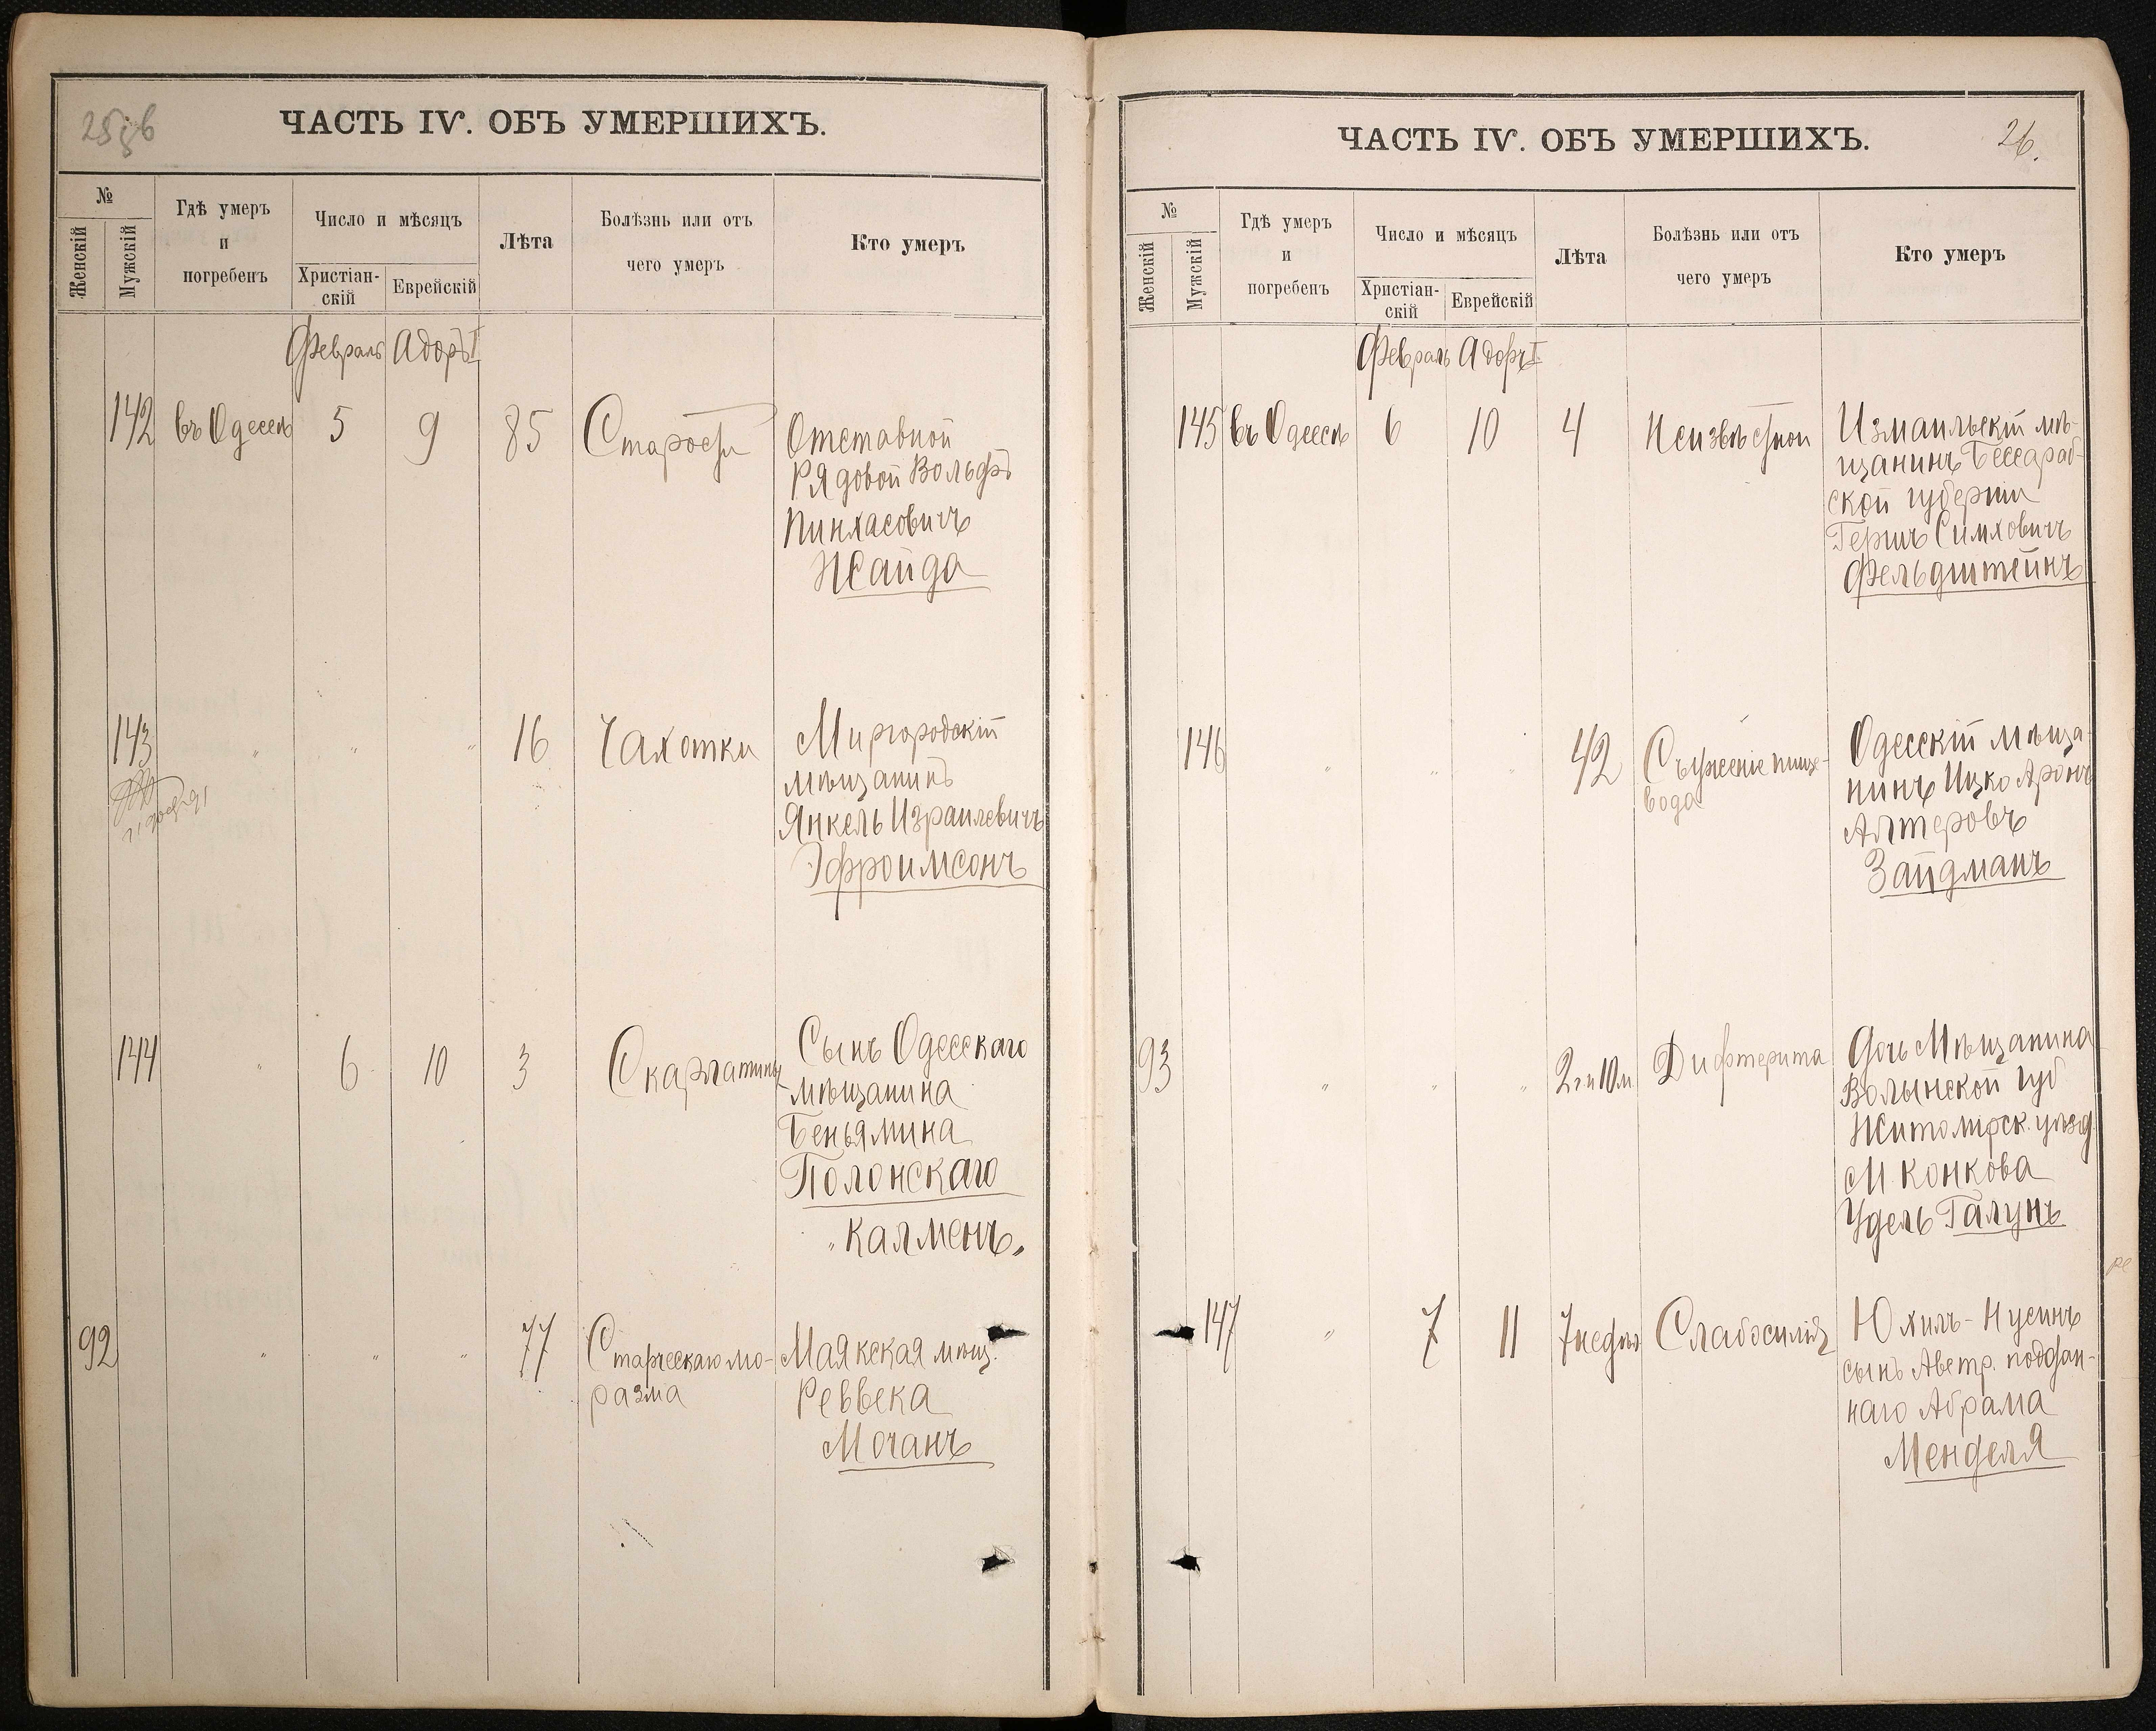 ЧАСТЬ IV. ОБЪ УМЕРШИХЪ.
№
Женскій
Мужскій
Гдѣ умеръ
и
погребенъ
Число и мѣсяцъ
Христіан-
скій
Еврейскій
Лѣта
Болѣзнь или отъ
чего умеръ
Кто умеръ
Февраль Адоръ I
142 въ Одессѣ 5 9 85 Старости Отставной
Рядовой Вольфъ
Пинхасовичъ
Жайда
143 " " " 16 Чахотки Миргородскій
мѣщанинъ
Янкель Израилевичъ
Эфроимсонъ
144 " 6 10 3 Скарлатины Сынъ Одесскаго
мѣщанина
Беньямина
Полонскаго
"Калменъ"
92 " " " 77 Старческаго мо- Маякская мѣщ.
разма Реввека
Мочанъ
ЧАСТЬ IV. ОБЪ УМЕРШИХЪ. 26.
№
Женскій
Мужскій
Гдѣ умеръ
и
погребенъ
Число и мѣсяцъ
Христіан-
скій
Еврейскій
Лѣта
Болѣзнь или отъ
чего умеръ
Кто умеръ
Февраль Адоръ I
145 въ Одессѣ 6 10 4 Неизвѣстной Измаильскій мѣ-
щанинъ Бессараб-
ской губерніи
Гершъ Симховичъ
Фельдштейнъ
146 " " " 42 Съуженіе пище- Одесскій мѣща-
вода нинъ Ицко Аронъ
Алтеровъ
Зайдманъ
93 " " " 2 г и 10 м Дифтерита Дочь Мѣщанина
Волынской губ
Житомірск. уѣзд.
М. Конкова
Удель Галунъ
147 " 7 11 7 недѣль Слабосилія Юхиль-Нусинъ
сынъ Австр. поддан-
наго Абрама
Менделя